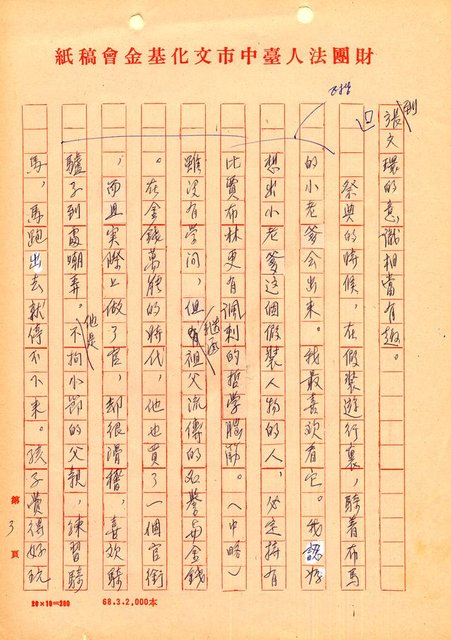 財團法人臺中市文化基金會稿紙
張文環的意識相當有趣。
祭典的時候，在假裝遊行裏，騎着布馬
的小老爹会出来。我最喜欢看它。我認為
想出小老爹这個假裝人物的人，必定持有
比賈布林更有諷刺的哲学腦筋。（中略）
雖没有学问，但継承祖父流傳的名譽与金錢
。在金錢萬能的時代，他也買了一個官銜
，而且实際上做了官，却很滑稽，喜欢騎
驢子到處嘲弄。他是不拘小節的父親，練習騎
馬，馬跑出去就停不下来。孩子覺得好玩
第3頁
20×10＝200
68.3.2,000本